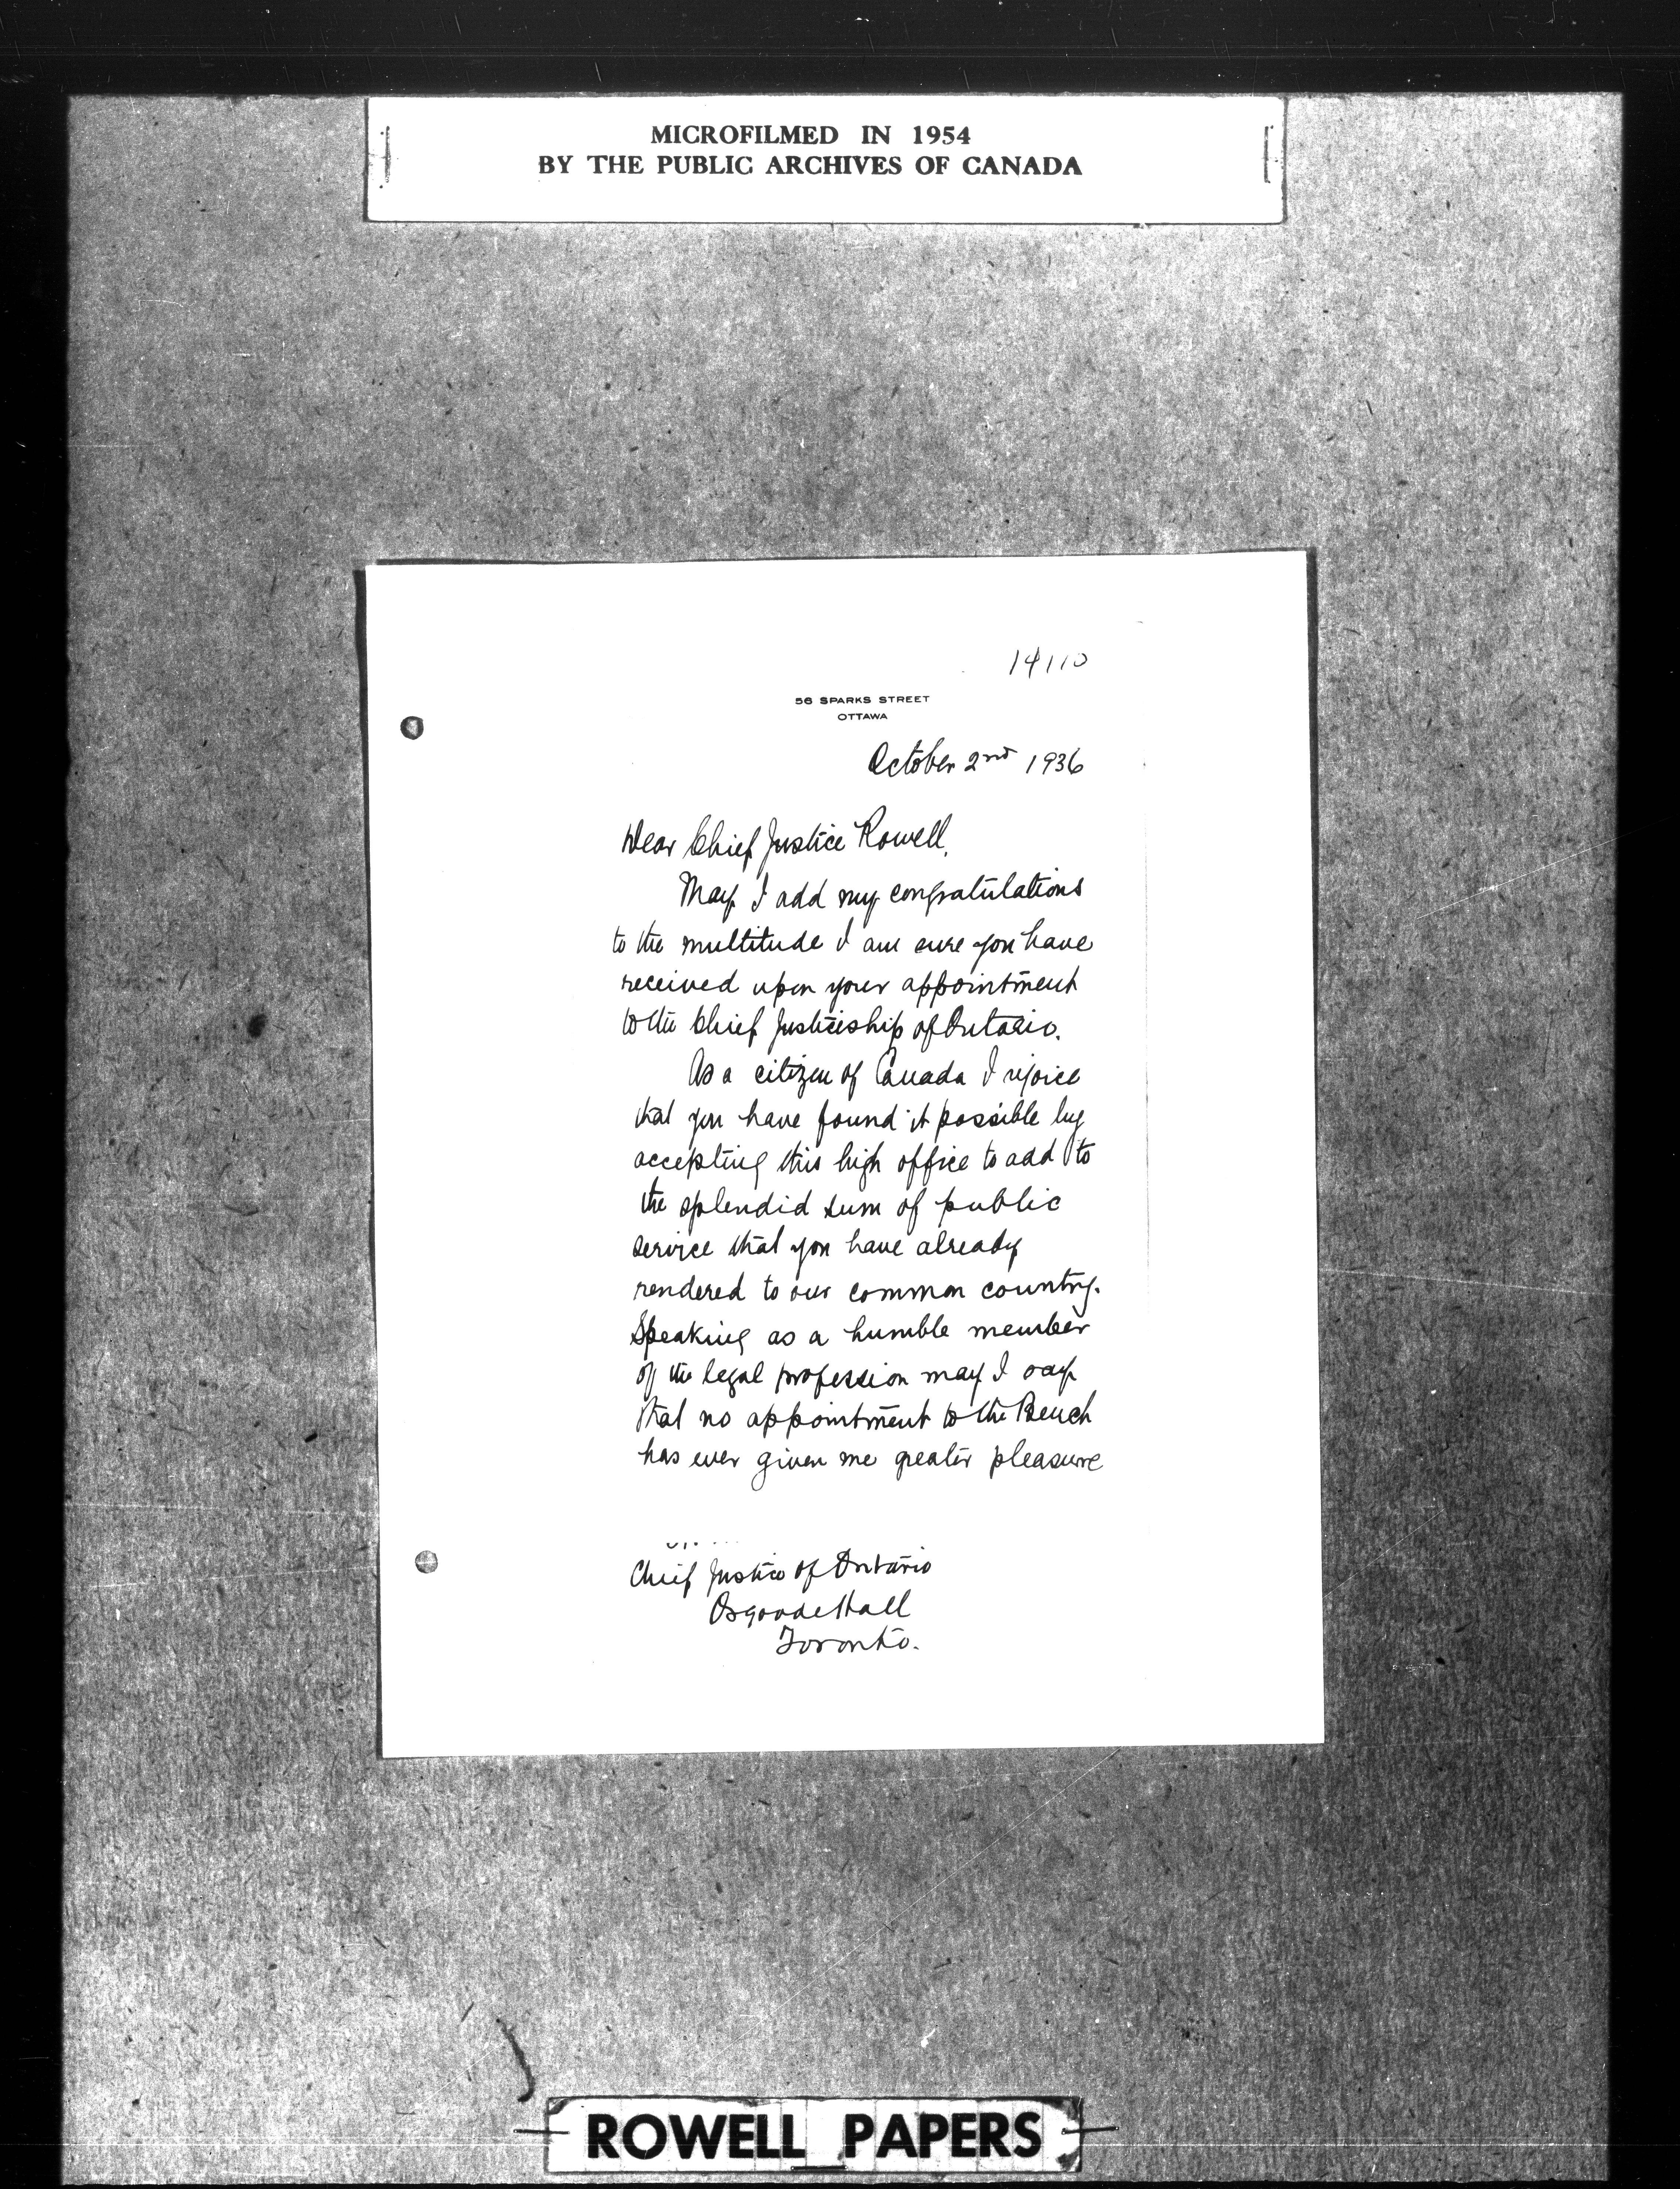 MICROFILMED IN 1954
BY THE PUBLIC ARCHIVES OF CANADA
14110
56 SPARKS STREET
OTTAWA
October 2nd 1936
Dear Chief Justice Rowell,
May I add my congratulations
to the multitude I am sure you have
received upon your appointment
to the Chief Justiceship of Ontario.
As a citizen of Canada I rejoice
that you have found it possible by
accepting this high office to add to
the splendid sum of public
service that you have already
rendered to our common country.
Speaking as a humble member
of the legal profession may I say
that no appointment to the Bench
has ever given me greater pleasure
Chief Justice of Ontario
Osgoode Hall
Toronto.
ROWELL PAPERS